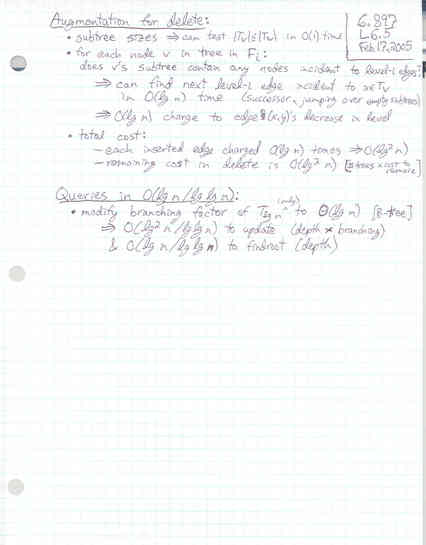 Augmentation for delete:
6.897
L6.5
Feb. 17, 2005
• subtree sizes ⇒ can test |Tv|≤|Tw| in O(1) time
• for each node v in tree in Fi:
does v's subtree contain any nodes incident to level-i edges?
⇒ can find next level-i edge incident to x∈Tv
in O(lg n) time (successor, jumping over empty subtrees)
⇒ O(lg n) charge to edge (x,y)'s decrease in level
• total cost:
– each inserted edge charged O(lg n) times ⇒ O(lg² n)
– remaining cost in delete is O(lg² n) [# trees × cost to remove]
Queries in O(lg n/lg lg n):
• modify branching factor of T lg n (only) to Θ(lg n) [B-tree]
⇒ O(lg² n/lg lg n) to update (depth * branching)
& O(lg n/lg lg n) to findroot (depth)